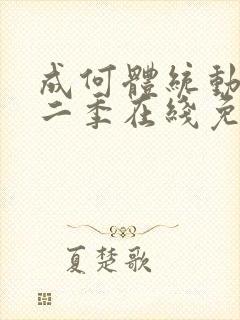 成何體統動
二季在綫免
夏楚歌